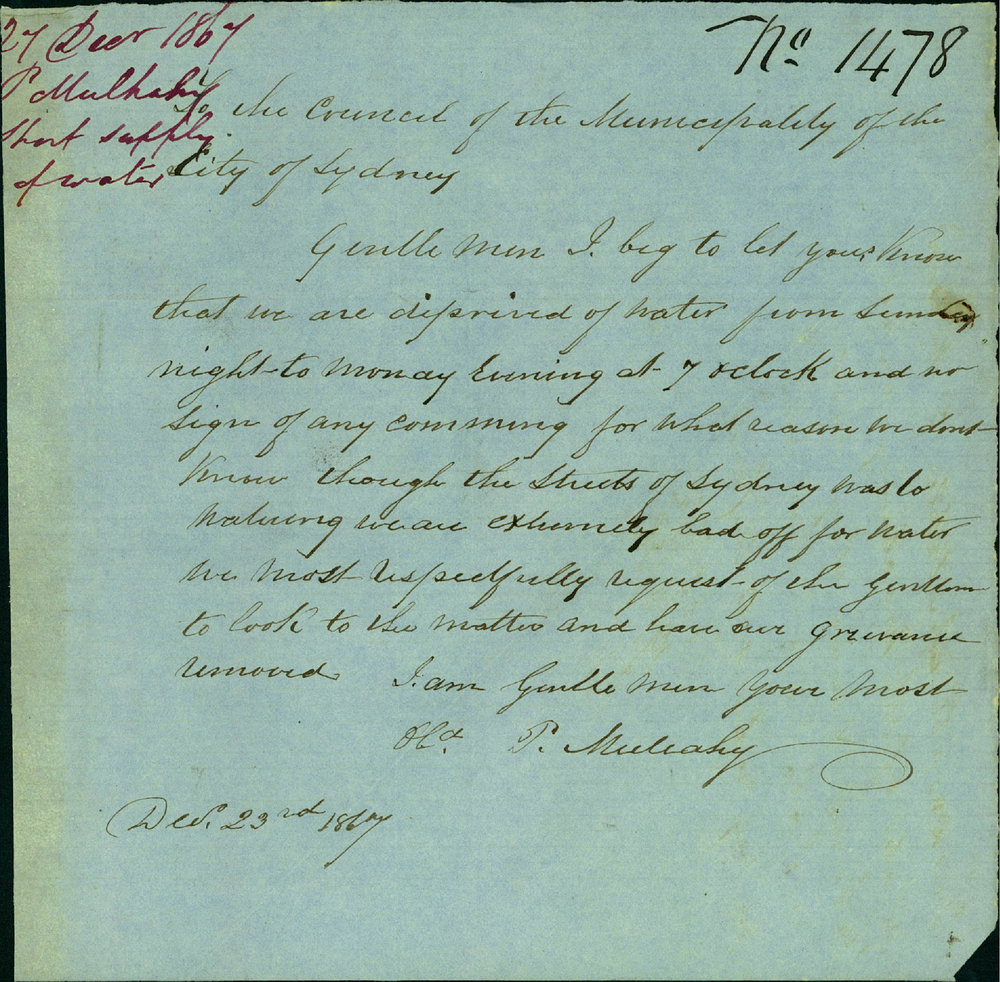 27 Decr 1867
P Mulhahy
Short supply
of water
No 1478
To the Council of the Municipality of the
City of Sydney
Gentle men I. beg to let your Know
that we are disprived of water from Sunday
night to Monay Evening at 7 oclock and no
sign of any comming for what reason we dont
Know though the Streets of Sydney was to
watering we are extremely bad off for water
we most respectfully request of the Gentlemn
to look to the matter and have our Grievance
removed I. am Gentle men your most
Obt P. Mulcahy
Decr. 23rd 1867